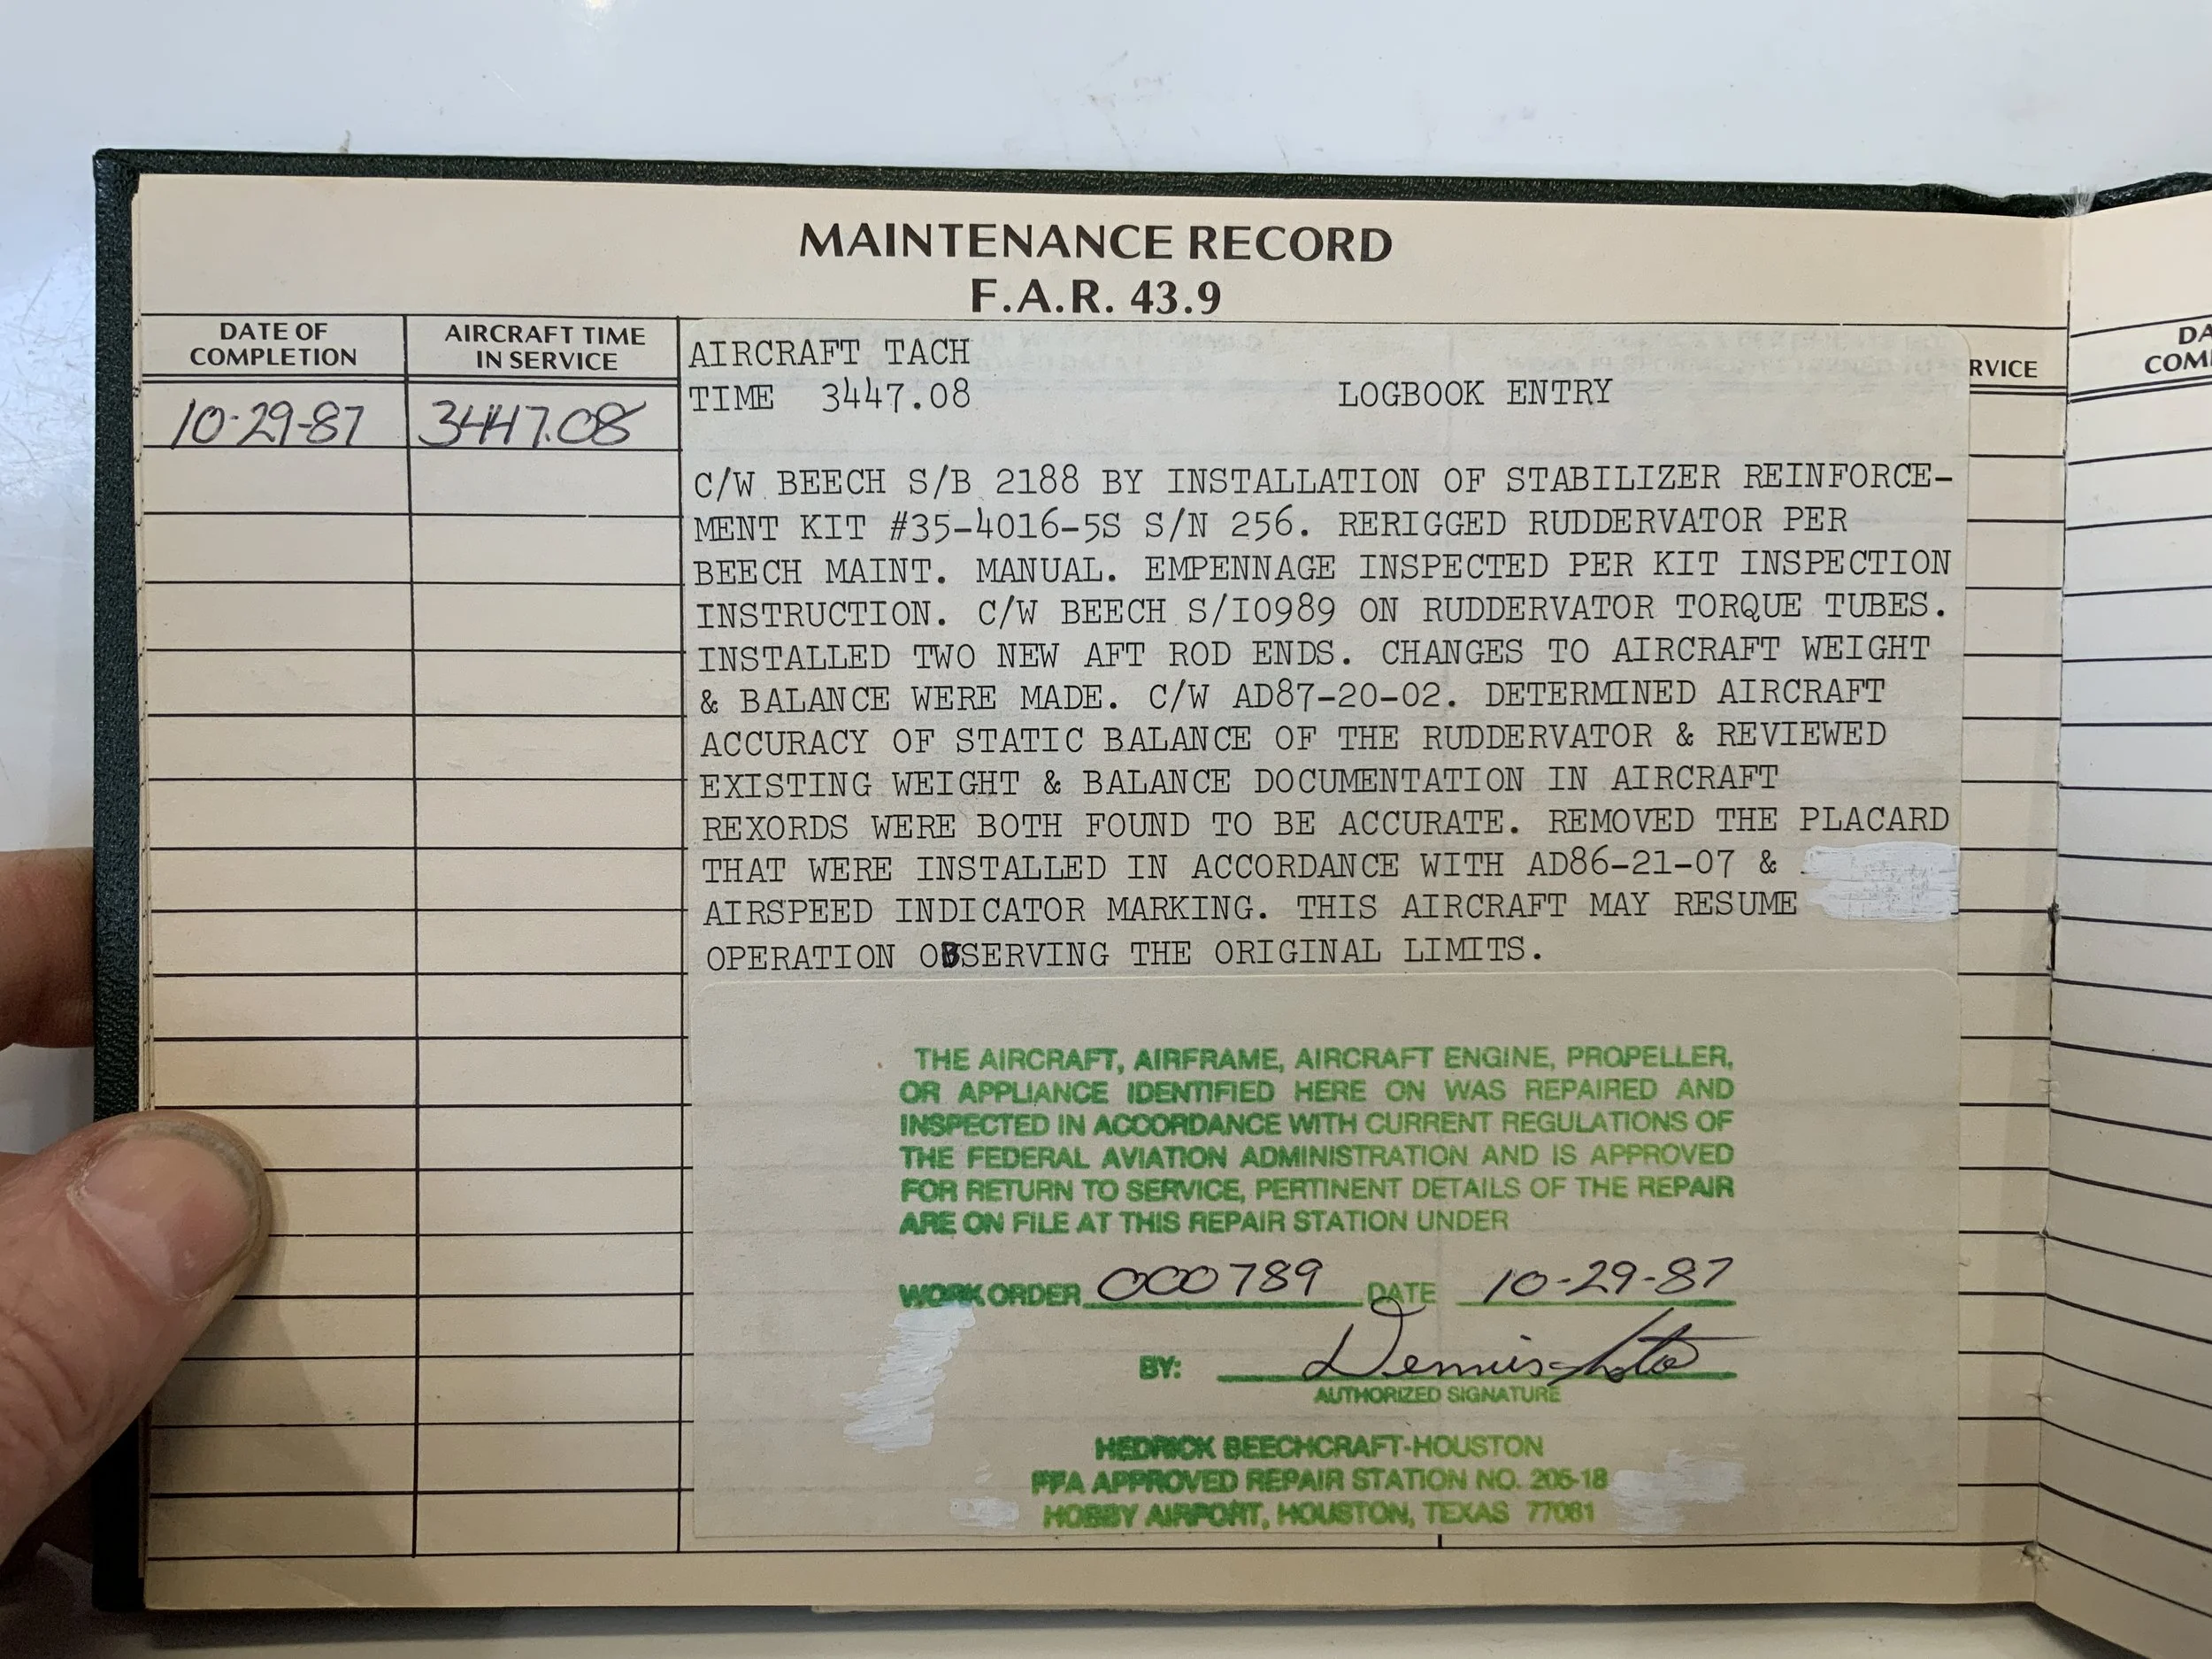 MAINTENANCE RECORD
F.A.R. 43.9
DATE OF
COMPLETION
AIRCRAFT TIME
IN SERVICE
10-29-87
3447.08
AIRCRAFT TACH
TIME 3447.08 LOGBOOK ENTRY
C/W BEECH S/B 2188 BY INSTALLATION OF STABILIZER REINFORCE-
MENT KIT #35-4016-5S S/N 256. RERIGGED RUDDERVATOR PER
BEECH MAINT. MANUAL. EMPENNAGE INSPECTED PER KIT INSPECTION
INSTRUCTION. C/W BEECH S/I0989 ON RUDDERVATOR TORQUE TUBES.
INSTALLED TWO NEW AFT ROD ENDS. CHANGES TO AIRCRAFT WEIGHT
& BALANCE WERE MADE. C/W AD87-20-02. DETERMINED AIRCRAFT
ACCURACY OF STATIC BALANCE OF THE RUDDERVATOR & REVIEWED
EXISTING WEIGHT & BALANCE DOCUMENTATION IN AIRCRAFT
REXORDS WERE BOTH FOUND TO BE ACCURATE. REMOVED THE PLACARD
THAT WERE INSTALLED IN ACCORDANCE WITH AD86-21-07 &
AIRSPEED INDICATOR MARKING. THIS AIRCRAFT MAY RESUME
OPERATION OBSERVING THE ORIGINAL LIMITS.
THE AIRCRAFT, AIRFRAME, AIRCRAFT ENGINE, PROPELLER,
OR APPLIANCE IDENTIFIED HERE ON WAS REPAIRED AND
INSPECTED IN ACCORDANCE WITH CURRENT REGULATIONS OF
THE FEDERAL AVIATION ADMINISTRATION AND IS APPROVED
FOR RETURN TO SERVICE, PERTINENT DETAILS OF THE REPAIR
ARE ON FILE AT THIS REPAIR STATION UNDER
WORK ORDER 000789 DATE 10-29-87
BY: Dennis
AUTHORIZED SIGNATURE
HEDRICK BEECHCRAFT-HOUSTON
FFA APPROVED REPAIR STATION NO. 205-18
HOBBY AIRPORT, HOUSTON, TEXAS 77061
RVICE
DA
COM